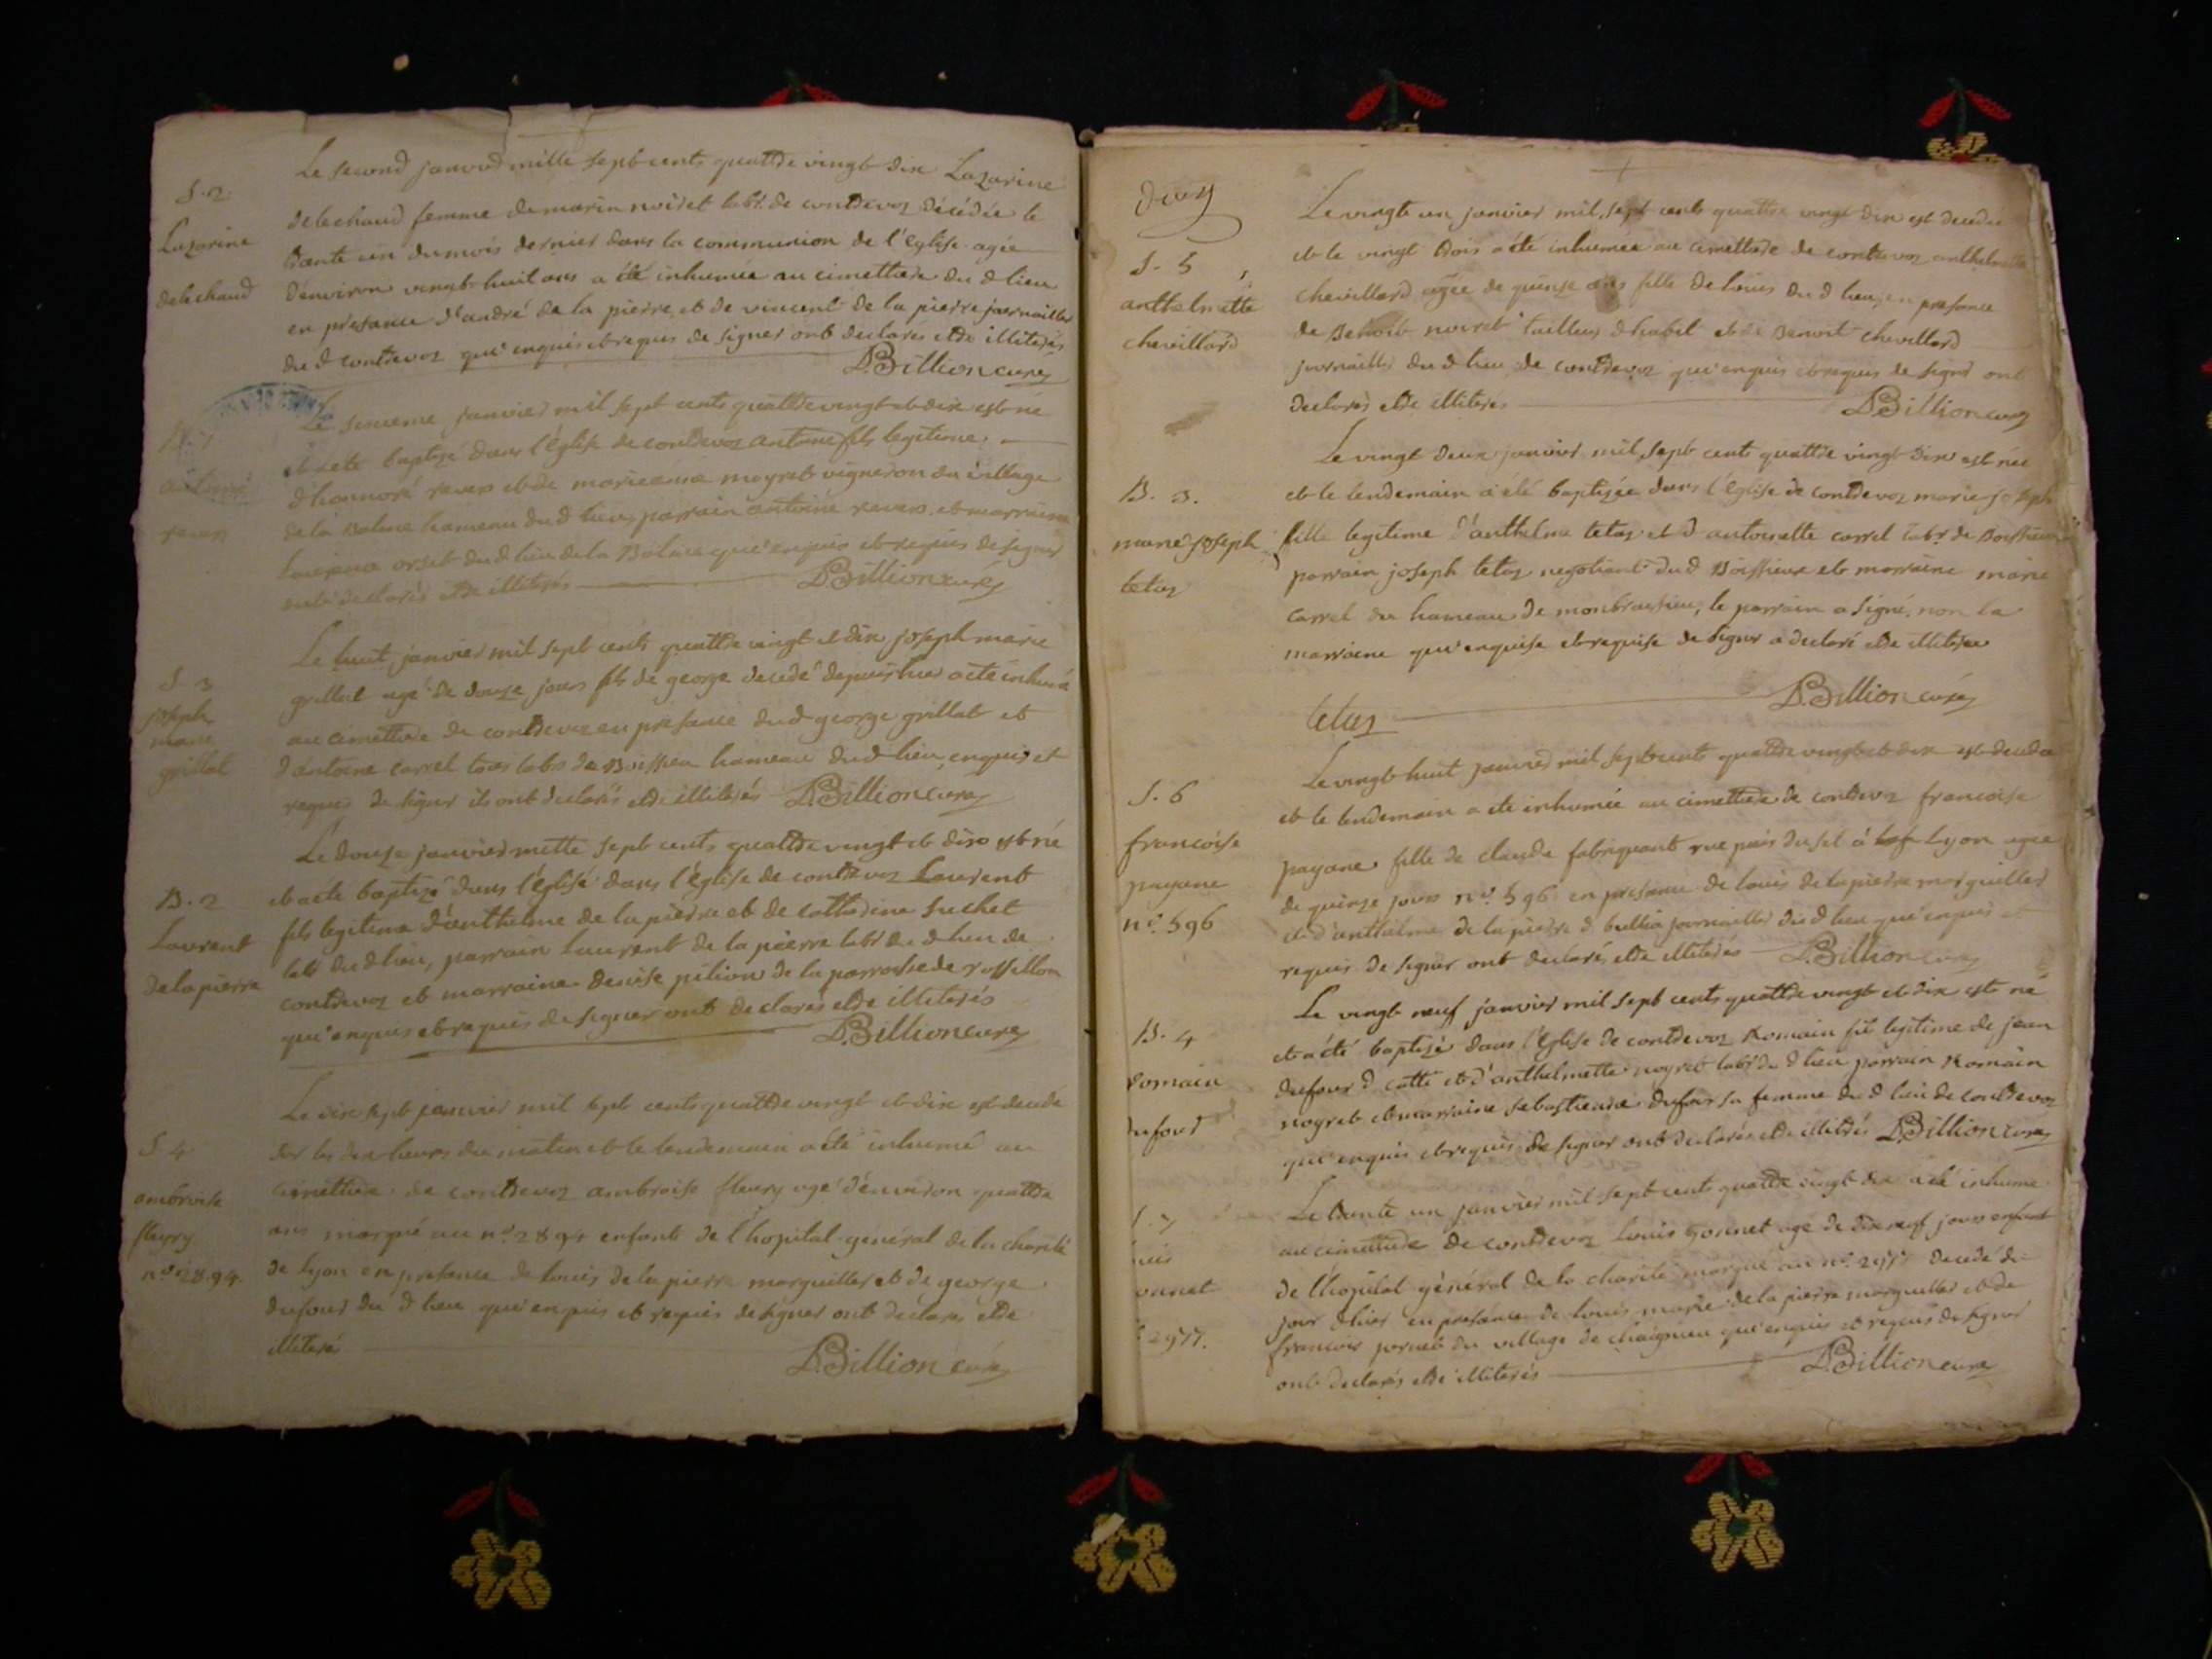 Le second janvier mille sept cents quattre vingt dix Lazarine
S. 2
Lazarine
delechaud
delechaud femme de marin noiret labr. de contrevoz décédée le
trente un du mois dernier dans la communion de l'église agée
d'environ vingt huit ans a été inhumée au cimettiere du d lieu
en presance d'andré de la pierre et de vincent de la pierre journaillier
du d contrevoz qu'enquis et requis de signer ont declarés etre illiterés
D. Billion curé
B. 1
antoine
Le janvier mil sept cents quattre vingt et dix est né
et a été baptizé dans l'église de contrevoz antoine fils legitime
d'honnoré et de marieanne moyret vigneron du village
de la Balme hameau du d lieu, parrain antoine et marraine
orset du d lieu de la Balme qu'enquis et requis de signer
ont declarés etre illiterés
D. Billion curé
S. 3
joseph
marie
grillat
Le huit janvier mil sept cents quattre vingt et dix joseph marie
grillat agé de douze jours fils de george decedé depuis hier a été inhumé
au cimettiere de contrevoz en presance du d george grillat et
d'antoine carrel tous labr de Boissieu hameau du d lieu, enquis et
requis de signer ils ont declarés etre illiterés D. Billion curé
B. 2
Laurent
delapierre
Le douze janvier mille sept cents quattre vingt et dix est né
et a été baptizé dans l'église dans l'église de contrevoz Laurent
fils legitime d'anthelme de la pierre et de cattherine suchet
labr du d lieu, parrain laurent de la pierre labr du d lieu de
contrevoz et marraine denise pilion de la parroisse de rossillon
qu'enquis et requis de signer ont declarés etre illiterés
D. Billion curé
S. 4
ambroise
fleury
n° 2894.
Le dix sept janvier mil sept cents quattre vingt et dix est decedé
sur les dix heures du matin et le lendemain a été inhumé au
cimettiere de contrevoz ambroise fleury agé d'environ quattre
ans marqué au n° 2894 enfant de l'hopital général de la charité
de lyon en presance de louis de la pierre marguillier et de george
dufour du d lieu qu'enquis et requis de signer ont declarés etre
illiteré
D. Billion curé
S. 5
anthelmette
chevillard
Le vingte un janvier mil sept cents quattre vingt dix est decedée
et le vingt trois a été inhumée au cimettiere de contrevoz anthelmette
chevillard agée de quinze ans fille de louis du d lieu, en presance
de Benoit noiret tailleur d habit et de Benoit chevillard
journaillier du d lieu de contrevoz qu'enquis et requis de signer ont
declarés etre illiterés
D. Billion curé
B. 3.
marie joseph
tetaz
Le vingt deux janvier mil sept cents quattre vingt dix est née
et le lendemain a été baptizée dans l'église de contrevoz marie joseph
fille legitime d'anthelme tetaz et d antoinette carrel labr. de Boissieu
parrain joseph tetaz negotiant du d Boissieux et marraine marie
carrel du hameau de montbraisieu, le parrain a signé, non la
marraine qu'enquise et requise de signer a declaré etre illiterée
tetaz
D. Billion curé
S. 6
francoise
payane
n°. 596
Le vingt huit janvier mil sept cents quattre vingt et dix est decedée
et le lendemain a été inhumée au cimettiere de contrevoz francoise
payane fille de claude fabriquant rue puis du sel à Lyon agée
de quinze jours n°. 596 en presance de louis de la pierre marguillier
et d'anthelme de la pierre d bullia journaillier du d lieu qu'enquis et
requis de signer ont declarés etre illiterés D. Billion curé
B. 4
romain
dufour
Le vingt neuf janvier mil sept cents quattre vingt et dix est né
et a été baptizé dans l'église de contrevoz Romain fil legitime de jean
dufour d catti et d'anthelmette noyret labr du d lieu parrain Romain
noyret et marraine sebastienne dufour sa femme du d lieu de contrevoz
qu'enquis et requis de signer ont declarés etre illiterés D. Billion curé
S. 7
ouis
onnet
2977.
Le trente un janvier mil sept cents quattre vingt dix a été inhumé
au cimettiere de contrevoz louis bonnet agé de dix neuf jours enfant
de l'hopital général de la charité marqué au n°. 2977 decedé du
jour d hier en presance de louis marie de la pierre marguillier et de
francois pernet du village de chaignieu qu'enquis et requis de signer
ont declarés etre illiterés
D. Billion curé